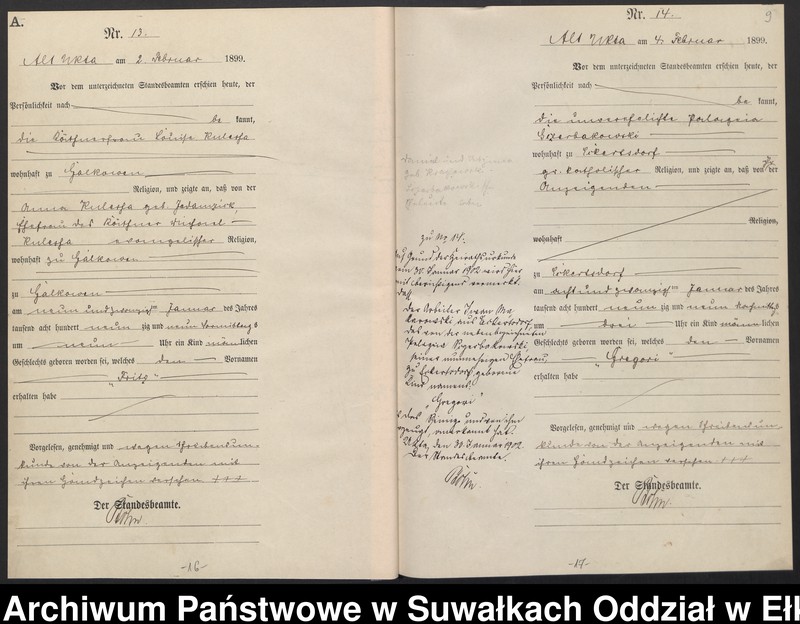 A.
Nr. 13.
Alt Ukta am 2 Februar 1899.
Vor dem unterzeichneten Standesbeamten erschien heute, der
Persönlichkeit nach
be kannt,
die Käthnerfrau Louise Kulessa
wohnhaft zu Galkowen
Religion, und zeigte an, daß von der
Anna Kulessa geb.
Ehefrau des Käthner
Kulessa evangelischer Religion,
wohnhaft zu Galkowen
zu Galkowen
am neun und zwanzigsten Januar des Jahres
tausend acht hundert neun zig und neun Vormittags
um neun Uhr ein Kind männlichen
Geschlechts geboren worden sei, welches den Vornamen
"Fritz"
erhalten habe
Vorgelesen, genehmigt und wegen Schreibensun-
kunde von der Anzeigenden mit
ihren Handzeichen versehen +++
Der Standesbeamte.
Böhm
-16-
zu No 14.
Auf Grund der Heirathsurkunde
vom 30. Januar 1902 wird hier
mit berichtigend vermerkt,
daß
der Arbeiter Iwan
aus Eckertsdorf
das von der nebenbezeichneten
Pelagia
seiner nunmehrigen Ehefrau,
zu Eckertsdorf geborene
Kind namens
"Gregori"
als das Seinige und von ihm
erzeugt, anerkannt hat.
Ukta, den 30. Januar 1902.
Der Standesbeamte.
Böhm.
9
Nr. 14.
Alt Ukta am 4. Februar 1899.
Vor dem unterzeichneten Standesbeamten erschien heute, der
Persönlichkeit nach
be kannt,
die unverehelichte Pelagia
wohnhaft zu Eckertsdorf
gr. katholischer Religion, und zeigte an, daß von der
Anzeigenden
Religion,
wohnhaft
zu Eckertsdorf
am acht und zwanzigsten Januar des Jahres
tausend acht hundert neun zig und neun Nachmittags
um drei Uhr ein Kind männlichen
Geschlechts geboren worden sei, welches den Vornamen
"Gregori"
erhalten habe
Vorgelesen, genehmigt und wegen Schreibensun-
kunde von der Anzeigenden mit
ihren Handzeichen versehen +++
Der Standesbeamte.
Böhm.
-17-
Archiwum Państwowe w Suwałkach Oddział w Ełk